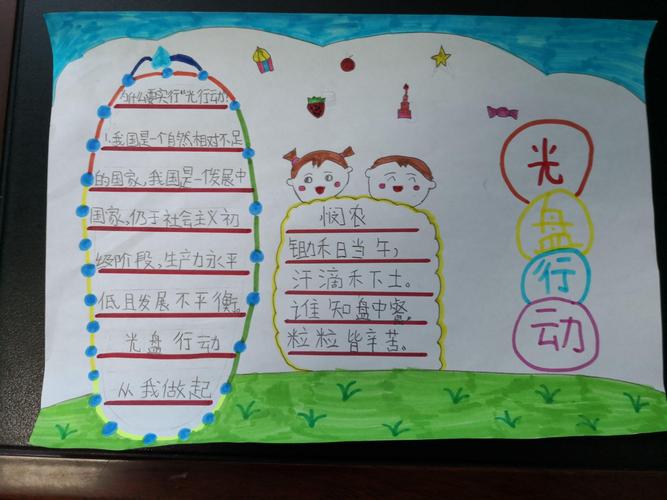 为什么要实行"光行动:
1、我国是一个自然相对不足
的国家,我国是一发展中
国家,仍于社会主义初
级阶段,生产力水平
低且发展不平衡。
光盘行动
从我做起
悯农
锄禾日当午,
汗滴禾下土。
谁知盘中餐,
粒粒皆辛苦。
光
盘
行
动